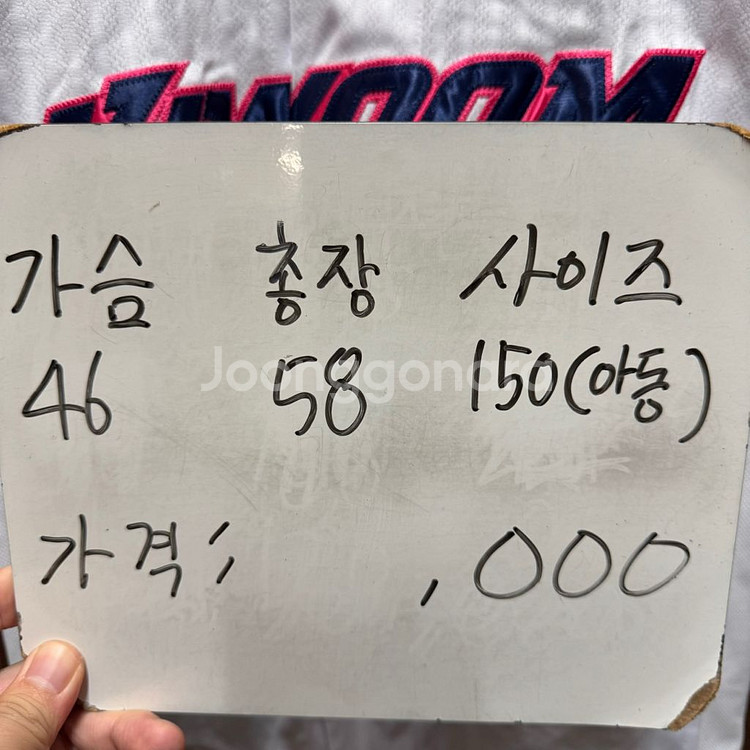 KIWOOM
가슴 총장 사이즈
46 58 150(아동)
Joonggonara
가격 ; ,000